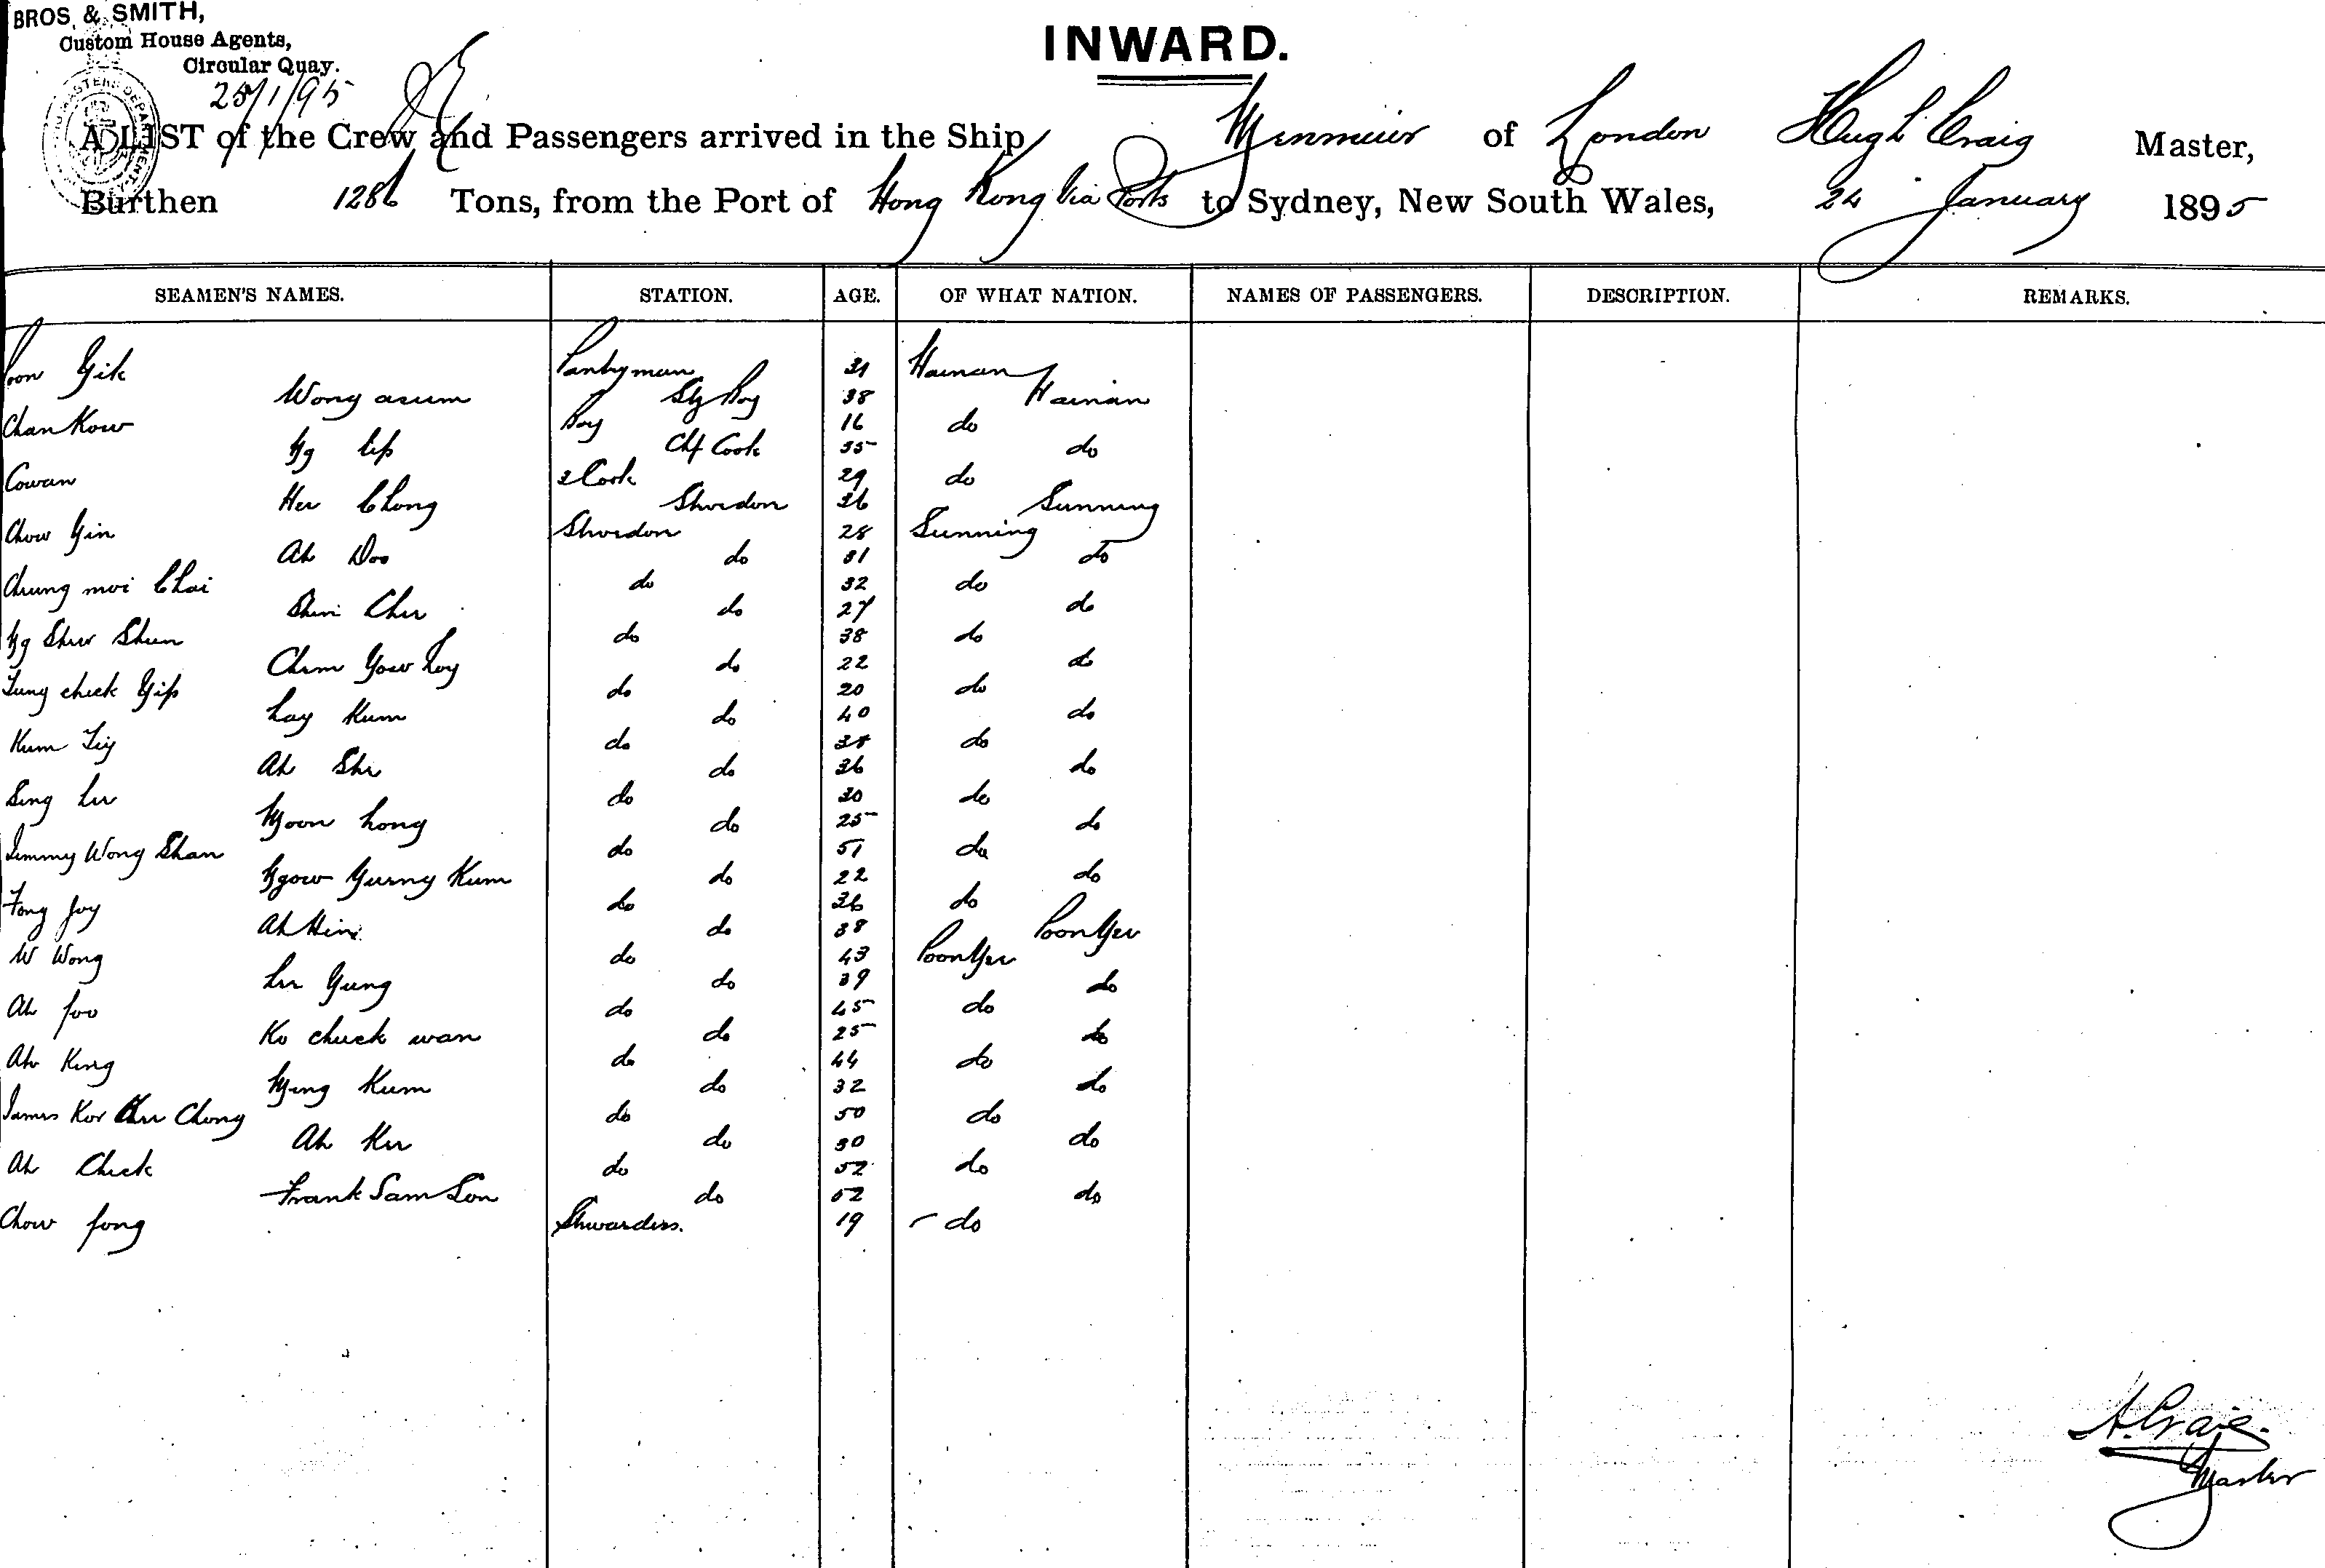 BROS. & SMITH,
Custom House Agents,
Circular Quay.
INWARD.
25/1/95
A LIST of the Crew and Passengers arrived in the Ship Menmuir of London Hugh Craig Master,
Burthen 1286 Tons, from the Port of Hong Kong via Ports to Sydney, New South Wales, 24 January 1895
SEAMEN'S NAMES. STATION. AGE. OF WHAT NATION. NAMES OF PASSENGERS. DESCRIPTION. REMARKS.
Poon Yik Pantryman 31 Hainan
Wong asum Stg Boy 38 Hainan
Chan Kow Boy 16 do
Ng Lip Chf Cook 35 do
Cowan 2 Cook 29 do
Hee Chong Stwedon 36 Sunning
Chow Yin Stwedon 28 Sunning
Ah Doo do 31 do
Chung moi Chai do 32 do
Shin Chee do 27 do
Ng Shew Shun do 38 do
Chim Yow Loy do 22 do
Tung check Yip do 20 do
Lay Kum do 40 do
Kum Tiy do 38 do
Ah She do 36 do
Sing Lee do 30 do
Moon Long do 25 do
Jimmy Wong Shan do 51 do
Ngow Yurng Kum do 22 do
Fong Joy do 36 do
Ah Hing do 38 Poon Yee
W Wong do 43 Poon Yee
Lee Yung do 39 do
Ah Foo do 45 do
Ko chuck wan do 25 do
Ah King do 44 do
Ming Kum do 32 do
James Kor Chee Chong do 50 do
Ah Kee do 30 do
Ah Check do 52 do
Frank Sam Son do 52 do
Chow Fong Stwardess. 19 do
H. Craig.
Master